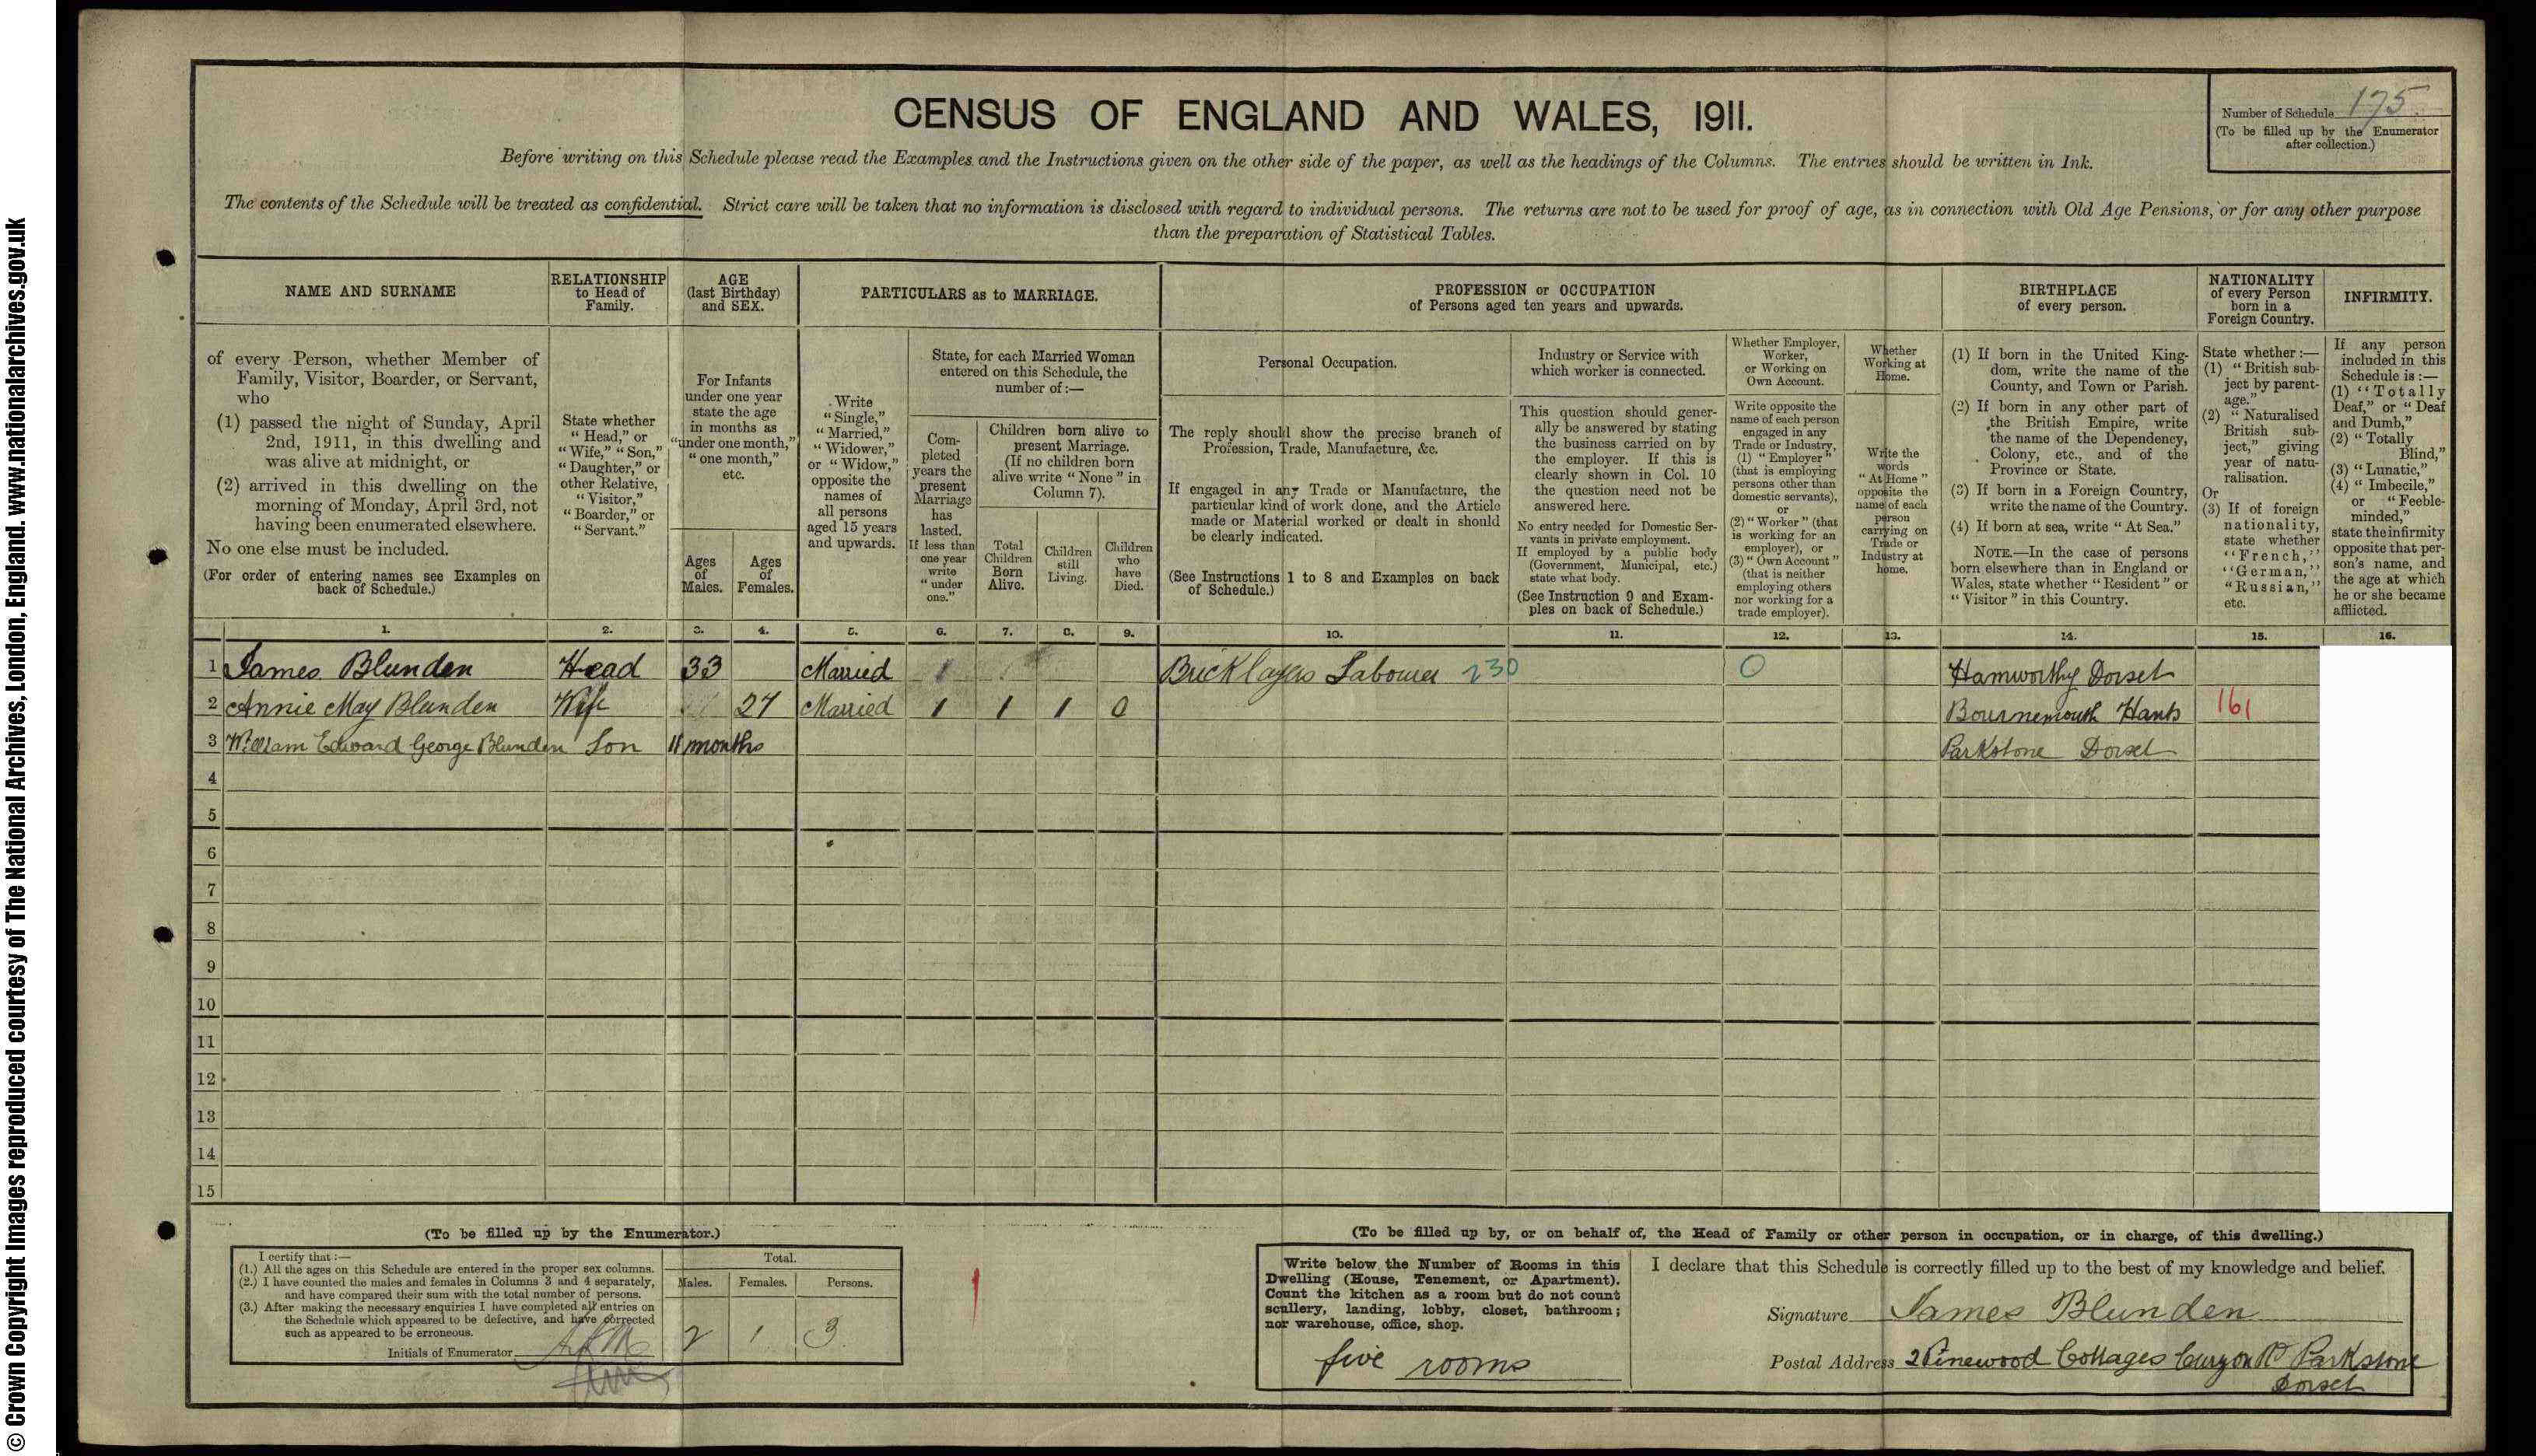 © Crown Copyright Images reproduced courtesy of The National Archives, London, England. www.nationalarchives.gov.uk
CENSUS OF ENGLAND AND WALES, 1911.
Number of Schedule 175
(To be filled up by the Enumerator
after collection.)
Before writing on this Schedule please read the Examples and the Instructions given on the other side of the paper, as well as the headings of the Columns. The entries should be written in Ink.
The contents of the Schedule will be treated as confidential. Strict care will be taken that no information is disclosed with regard to individual persons. The returns are not to be used for proof of age, as in connection with Old Age Pensions, or for any other purpose
than the preparation of Statistical Tables.
NAME AND SURNAME
of every Person, whether Member of
Family, Visitor, Boarder, or Servant,
who
(1) passed the night of Sunday, April
2nd, 1911, in this dwelling and
was alive at midnight, or
(2) arrived in this dwelling on the
morning of Monday, April 3rd, not
having been enumerated elsewhere.
No one else must be included.
(For order of entering names see Examples on
back of Schedule.)
RELATIONSHIP
to Head of
Family.
State whether
"Head," or
"Wife," "Son,"
"Daughter," or
other Relative,
"Visitor,"
"Boarder," or
"Servant."
AGE
(last Birthday)
and SEX.
For Infants
under one year
state the age
in months as
"under one month,"
"one month,"
etc.
Ages
of
Males.
Ages
of
Females.
PARTICULARS as to MARRIAGE.
Write
"Single,"
"Married,"
"Widower,"
or "Widow,"
opposite the
names of
all persons
aged 15 years
and upwards.
State, for each Married Woman
entered on this Schedule, the
number of:—
Com-
pleted
years the
present
Marriage
has
lasted.
If less than
one year
write
"under
one."
Children born alive to
present Marriage.
(If no children born
alive write "None" in
Column 7).
Total
Children
Born
Alive.
Children
still
Living.
Children
who
have
Died.
PROFESSION or OCCUPATION
of Persons aged ten years and upwards.
Personal Occupation.
The reply should show the precise branch of
Profession, Trade, Manufacture, &c.
If engaged in any Trade or Manufacture, the
particular kind of work done, and the Article
made or Material worked or dealt in should
be clearly indicated.
(See Instructions 1 to 8 and Examples on back
of Schedule.)
Industry or Service with
which worker is connected.
This question should gener-
ally be answered by stating
the business carried on by
the employer. If this is
clearly shown in Col. 10
the question need not be
answered here.
No entry needed for Domestic Ser-
vants in private employment.
If employed by a public body
(Government, Municipal, etc.)
state what body.
(See Instruction 9 and Exam-
ples on back of Schedule.)
Whether Employer,
Worker,
or Working on
Own Account.
Write opposite the
name of each person
engaged in any
Trade or Industry,
(1) "Employer"
(that is employing
persons other than
domestic servants),
or
(2) "Worker" (that
is working for an
employer), or
(3) "Own Account"
(that is neither
employing others
nor working for a
trade employer).
Whether
Working at
Home.
Write the
words
"At Home"
opposite the
name of each
person
carrying on
Trade or
Industry at
home.
BIRTHPLACE
of every person.
(1) If born in the United King-
dom, write the name of the
County, and Town or Parish.
(2) If born in any other part of
the British Empire, write
the name of the Dependency,
Colony, etc., and of the
Province or State.
(3) If born in a Foreign Country,
write the name of the Country.
(4) If born at sea, write "At Sea."
NOTE.—In the case of persons
born elsewhere than in England or
Wales, state whether "Resident" or
"Visitor" in this Country.
NATIONALITY
of every Person
born in a
Foreign Country.
State whether:—
(1) "British sub-
ject by parent-
age."
(2) "Naturalised
British sub-
ject," giving
year of natu-
ralisation.
Or
(3) If of foreign
nationality,
state whether
"French,"
"German,"
"Russian,"
etc.
INFIRMITY.
If any person
included in this
Schedule is:—
(1) "Totally
Deaf," or "Deaf
and Dumb,"
(2) "Totally
Blind,"
(3) "Lunatic,"
(4) "Imbecile,"
or "Feeble-
minded,"
state the infirmity
opposite that per-
son's name, and
the age at which
he or she became
afflicted.
1. 2. 3. 4. 5. 6. 7. 8. 9. 10. 11. 12. 13. 14. 15. 16.
1 James Blunden Head 33 Married 1 Bricklayers Labourer 230 0 Hamworthy Dorset
2 Annie May Blunden Wife 27 Married 1 1 1 0 Bournemouth Hants 161
3 William Edward George Blunden Son 11 months Parkstone Dorset
4
5
6
7
8
9
10
11
12
13
14
15
(To be filled up by the Enumerator.)
I certify that:—
(1.) All the ages on this Schedule are entered in the proper sex columns.
(2.) I have counted the males and females in Columns 3 and 4 separately,
and have compared their sum with the total number of persons.
(3.) After making the necessary enquiries I have completed all entries on
the Schedule which appeared to be defective, and have corrected
such as appeared to be erroneous.
Initials of Enumerator
Total.
Males. Females. Persons.
2 1 3
1
(To be filled up by, or on behalf of, the Head of Family or other person in occupation, or in charge, of this dwelling.)
Write below the Number of Rooms in this
Dwelling (House, Tenement, or Apartment).
Count the kitchen as a room but do not count
scullery, landing, lobby, closet, bathroom;
nor warehouse, office, shop.
five rooms
I declare that this Schedule is correctly filled up to the best of my knowledge and belief.
Signature James Blunden
Postal Address 2 Pinewood Cottages Curzon Rd Parkstone
Dorset